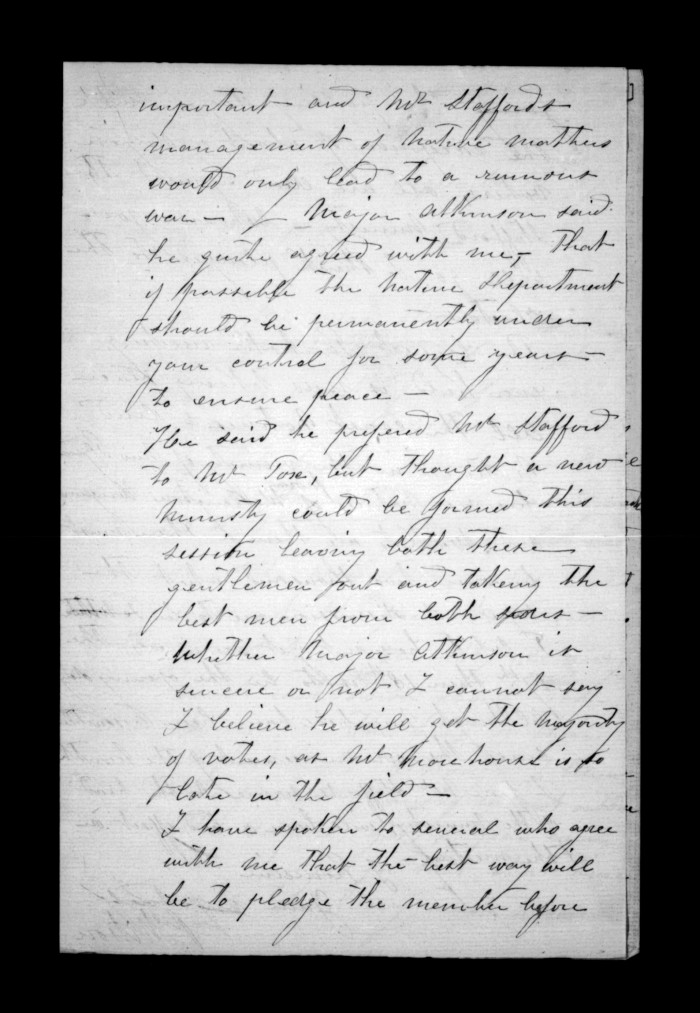 important and Mr Staffords
management of native matters
would only lead to a ruinous
war — Major Atkinson said
he quite agreed with me, that
if possible the Native Department
should be permanently under
your control for some years
to ensure peace —
He said he prefered Mr Stafford
to Mr Fox, but thought a new
Ministry could be formed this
session leaving both these
gentlemen out and taking the
best men from both sides —
Whether Major Atkinson is
sincere or not I cannot say
I believe he will get the majority
of votes, as Mr Morehouse is so
late in the field —
I have spoken to several who agree
with me that the best way will
be to pledge the member before